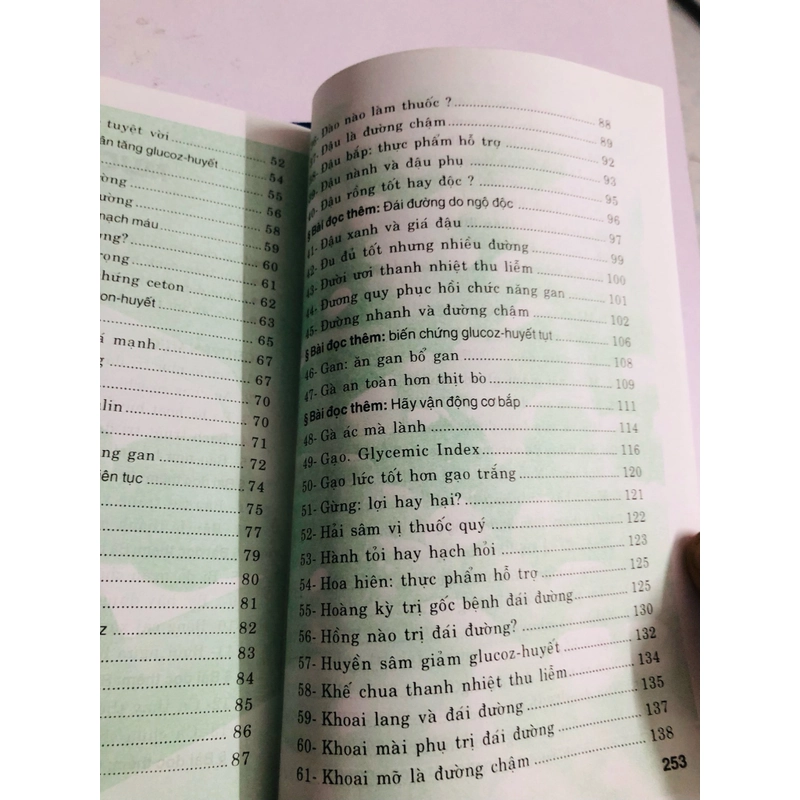 tuyệt vời ........ 52
tăng glucoz-huyết ........ 54
........ 55
........ 56
........ 58
mạch máu ........ 59
........ 60
........ 61
chứng ceton ........ 62
........ 63
........ 65
mạnh ........ 67
........ 67
........ 70
........ 70
........ 71
gan ........ 72
tục ........ 74
........ 75
........ 77
........ 79
........ 80
........ 81
........ 82
........ 83
........ 84
........ 85
........ 86
........ 87
Đào nào làm thuốc ? ........ 88
Đậu là đường chậm ........ 89
Đậu bắp: thực phẩm hỗ trợ ........ 92
Đậu nành và đậu phụ ........ 93
40- Đậu rồng tốt hay độc ? ........ 95
§ Bài đọc thêm: Đái đường do ngộ độc ........ 96
41- Đậu xanh và giá đậu ........ 97
42- Đu đủ tốt nhưng nhiều đường ........ 99
43- Đười ươi thanh nhiệt thu liễm ........ 100
44- Đương quy phục hồi chức năng gan ........ 101
45- Đường nhanh và đường chậm ........ 102
§ Bài đọc thêm: biến chứng glucoz-huyết tụt ........ 106
46- Gan: ăn gan bổ gan ........ 108
47- Gà an toàn hơn thịt bò ........ 109
§ Bài đọc thêm: Hãy vận động cơ bắp ........ 111
48- Gà ác mà lành ........ 114
49- Gạo. Glycemic Index ........ 116
50- Gạo lức tốt hơn gạo trắng ........ 120
51- Gừng: lợi hay hại? ........ 121
52- Hải sâm vị thuốc quý ........ 122
53- Hành tỏi hay hạch hỏi ........ 123
54- Hoa hiên: thực phẩm hỗ trợ ........ 125
55- Hoàng kỳ trị gốc bệnh đái đường ........ 125
56- Hồng nào trị đái đường? ........ 130
57- Huyền sâm giảm glucoz-huyết ........ 132
58- Khế chua thanh nhiệt thu liễm ........ 134
59- Khoai lang và đái đường ........ 135
60- Khoai mài phụ trị đái đường ........ 137
61- Khoai mỡ là đường chậm ........ 138
253